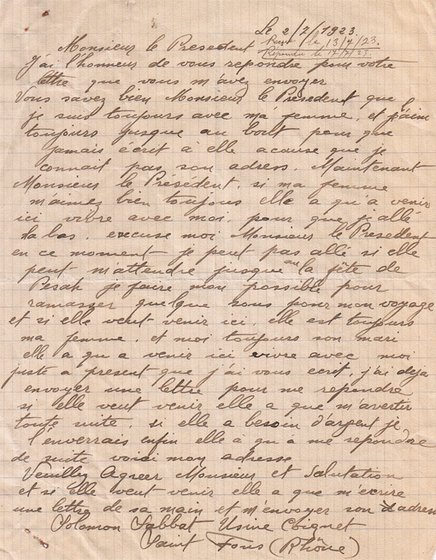 Le 2/2/1923.
Monsieur le President
Reçu le 13/2/23.
Répondu le
J'ai l'honneur de vous repondre pour votre
lettre que vous m'avez envoyer
Vous savez bien Monsieur le President que
je suis toujours avec ma femme et j'aim
toujours jusque au bout pour que
jamais écrit à elle acause que je
connait pas son adress. Maintenant
Monsieur le Président, si ma femme
m'aimez bien toujours elle a qu'a venir
ici vivre avec moi pour que j'allé
la bas. excuse moi Monsieur le President
en ce moment je peut pas allé si elle
peut m'attendre jusque la fête de
Pesah je faire mon possible pour
ramasser quelque sous pour mon voyage
et si elle veut venir ici, elle est toujours
ma femme, et moi toujours son mari
elle a qu a venir ici vivre avec moi
juste a present que j'ai vous ecrit, j'ai deja
envoyer une lettre pour me repondre
si elle veut venir elle a que m'avertir
toute suite, si elle a besoin d'argent je
l'enverrais enfin elle a qu a me repondre
de suite voici mon adresse
Veuillez Agreer Monsieur et Salutation
et si Elle veut venir elle a que m'ecrire
une lettre de sa main et m'envoyer son adress
Solomon Sabbat Usine Coignet
Saint Fons (Rhône)